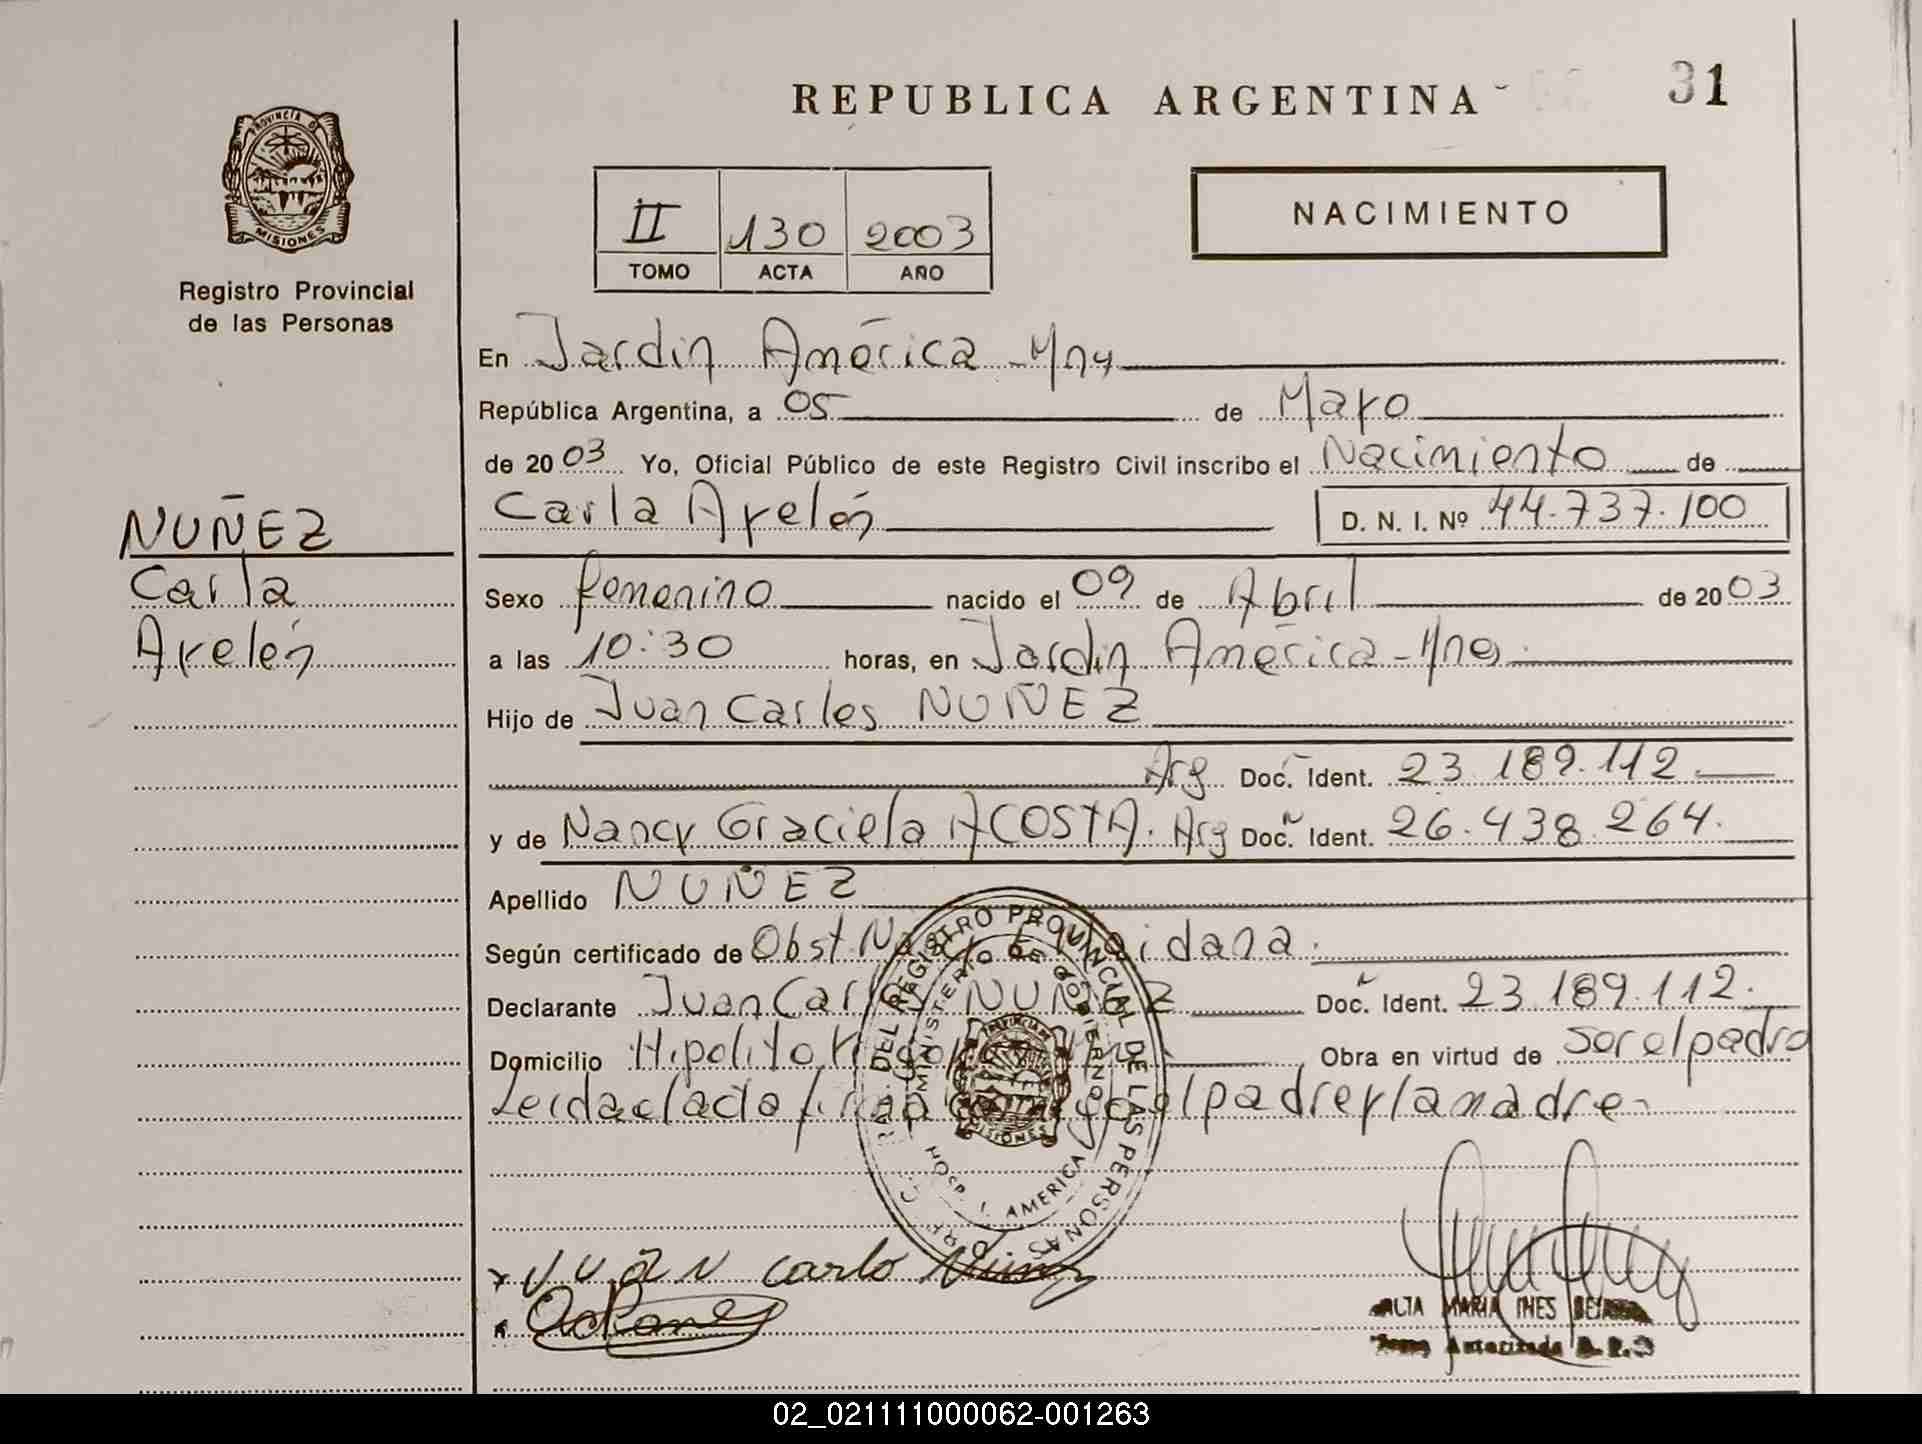 REPUBLICA ARGENTINA
31
PROVINCIA DE
MISIONES
Registro Provincial
de las Personas
II 130 2003
TOMO ACTA AÑO
NACIMIENTO
En Jardin América - Mnes
República Argentina, a 05 de Mayo
de 2003 Yo, Oficial Público de este Registro Civil inscribo el Nacimiento de
Carla Ayelén D. N. I. Nº 44.737.100
NUÑEZ
Carla
Ayelén
Sexo femenino nacido el 09 de Abril de 2003
a las 10:30 horas, en Jardin América - Mnes.
Hijo de Juan Carlos NUÑEZ
Arg Doc. Ident. 23.189.112
y de Nancy Graciela ACOSTA. Arg Doc. Ident. 26.438.264.
Apellido NUÑEZ
Según certificado de Obst.
Declarante Juan Carlos NUÑEZ Doc. Ident. 23.189.112.
Domicilio Hipolito Obra en virtud de ser el padre
Leida el acta firman conmigo el padre y la madre
DEL REGISTRO PROVINCIAL DE LAS PERSONAS
MINISTERIO DE GOBIERNO
MISIONES
HOSP. J. AMERICA
Juan carlo Nuñez
MARIA INES
Autorizada
02_021111000062-001263